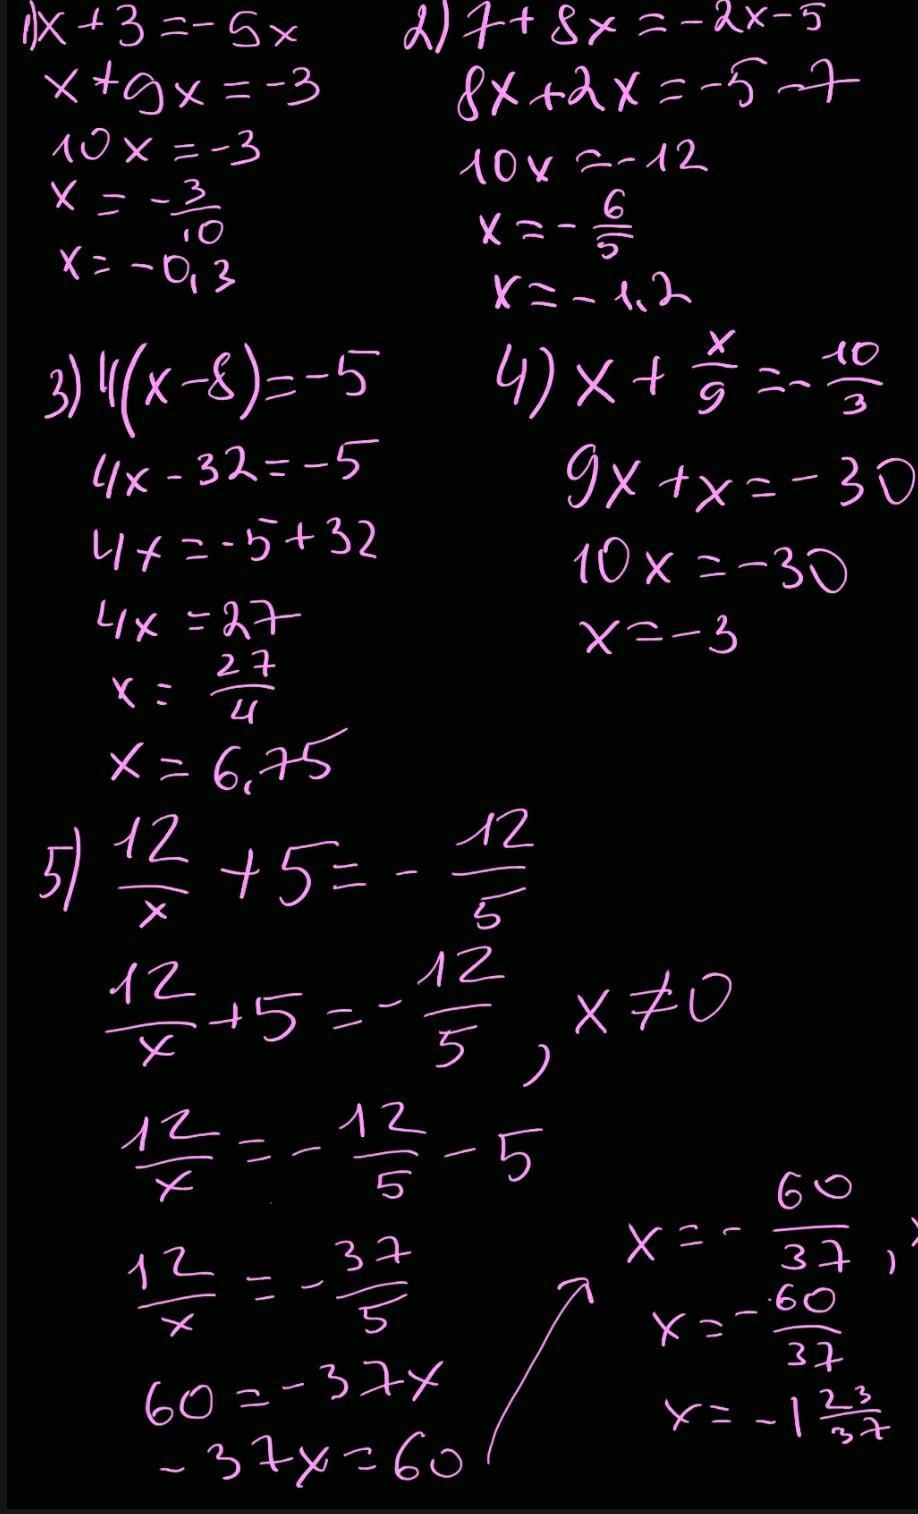 1) x + 3 = - 5x
x + 9x = -3
10x = -3
x = - 3/10
x = -0,3
2) 7 + 8x = -2x - 5
8x + 2x = -5 - 7
10x = -12
x = - 6/5
x = -1,2
3) 4(x - 8) = -5
4x - 32 = -5
4x = -5 + 32
4x = 27
x = 27/4
x = 6,75
4) x + x/9 = - 10/3
9x + x = -30
10x = -30
x = -3
5) 12/x + 5 = - 12/5
12/x + 5 = - 12/5 , x ≠ 0
12/x = - 12/5 - 5
12/x = - 37/5
60 = -37x
-37x = 60
x = - 60/37 ,
x = - 60/37
x = -1 23/37